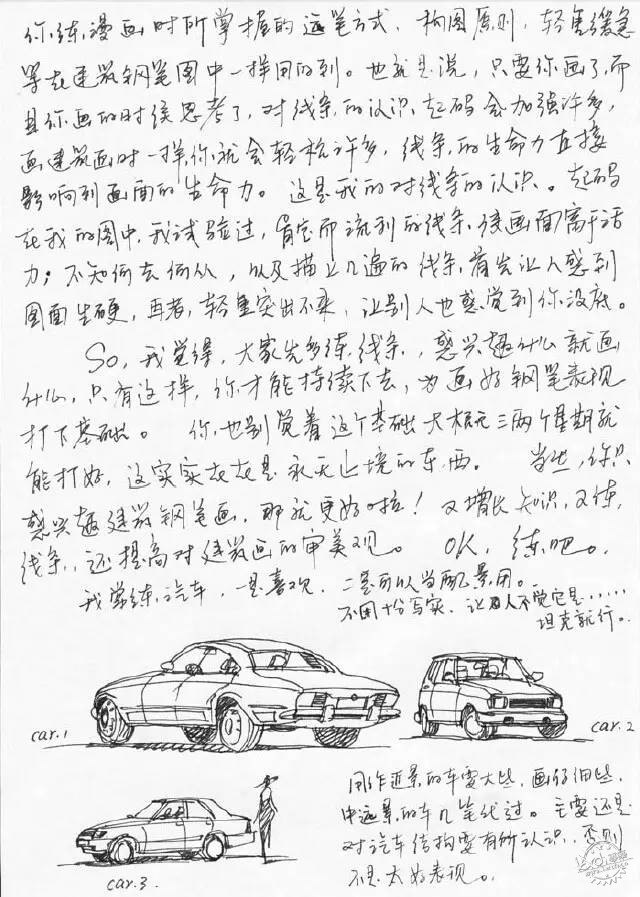 你练漫画时所掌握的运笔方式、构图原则、轻重缓急
等在建筑钢笔图中一样用的到。也就是说，只要你画了，而
且你画的时候思考了，对线条的认识起码会加强许多，
画建筑画时一样你就会轻松许多，线条的生命力直接
影响到画面的生命力。这是我的对线条的认识。起码
在我的图中，我试验过，肯定而流利的线条使画面富于活
力；不知何去何从，以及描上几遍的线条，首先让人感到
图面生硬，再者，轻重突出不来，让别人也感觉到你没底。
So，我觉得，大家先多练线条，感兴趣什么就画
什么，只有这样，你才能持续下去，为画好钢笔表现
打下基础。你也别觉着这个基础大概花三两个星期就
能打好，这实实在在是永无止境的东西。当然，你只
感兴趣建筑钢笔画，那就更好啦！又增长知识，又练
线条，还提高对建筑画的审美观。OK，练吧。
我常练汽车，一是喜欢，二是可以当配景用。
不用十分写实，让人不觉它是……
坦克就行。
car.1
car.2
用作近景的车要大些，画仔细些，
中远景的车几笔代过。主要还是
对汽车结构要有所认识，否则
不是太好表现。
car.3.